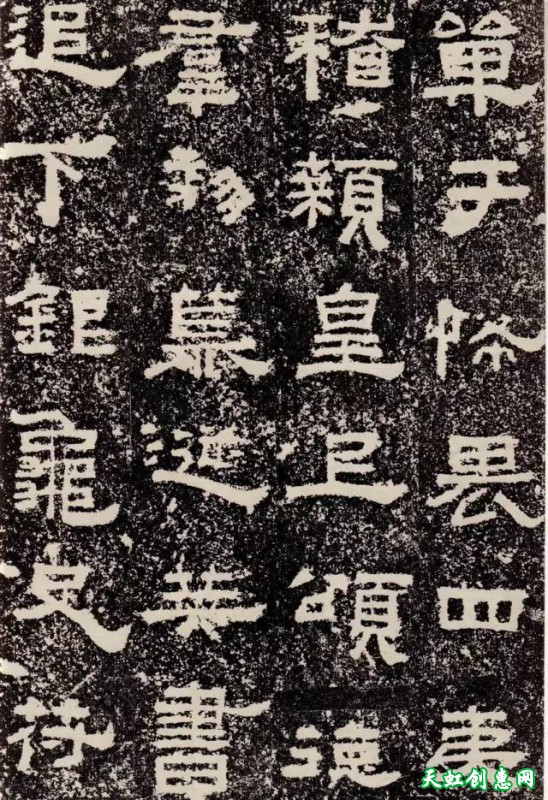 單于怖畏四夷
稽顙皇上頌德
羣黎慕涎策書
追下銀龜史符
天虹创惠网